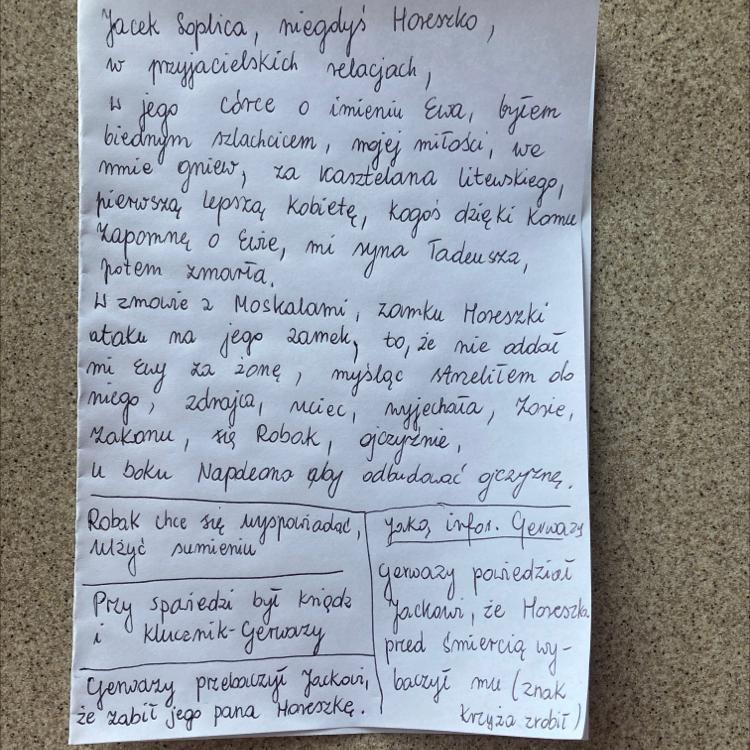 Jacek Soplica, niegdyś Horeszko,
w przyjacielskich relacjach,
W jego córce o imieniu Ewa, byłem
biednym szlachcicem, mojej miłości, we
mnie gniew, za kasztelana litewskiego,
pierwszą lepszą kobietę, kogoś dzięki komu
zapomnę o Ewie, mi syna Tadeusza,
potem zmarła.
W zmowie z Moskalami, zamku Horeszki
ataku na jego zamek, to, że nie oddał
mi Ewy za żonę, myśląc strzeliłem do
niego, zdrajca, uciec, wyjechała, Zosię,
zakonu, się Robak, ojczyźnie,
u boku Napoleona aby odbudować ojczyznę.
Robak chce się wyspowiadać,
ulżyć sumieniu
Przy spowiedzi był ksiądz
i klucznik-Gerwazy
Gerwazy przebaczył Jackowi,
że zabił jego pana Horeszkę.
Jaką infor. Gerwazy
Gerwazy powiedział
Jackowi, że Horeszka
przed śmiercią wy-
baczył mu (znak
krzyża zrobił)